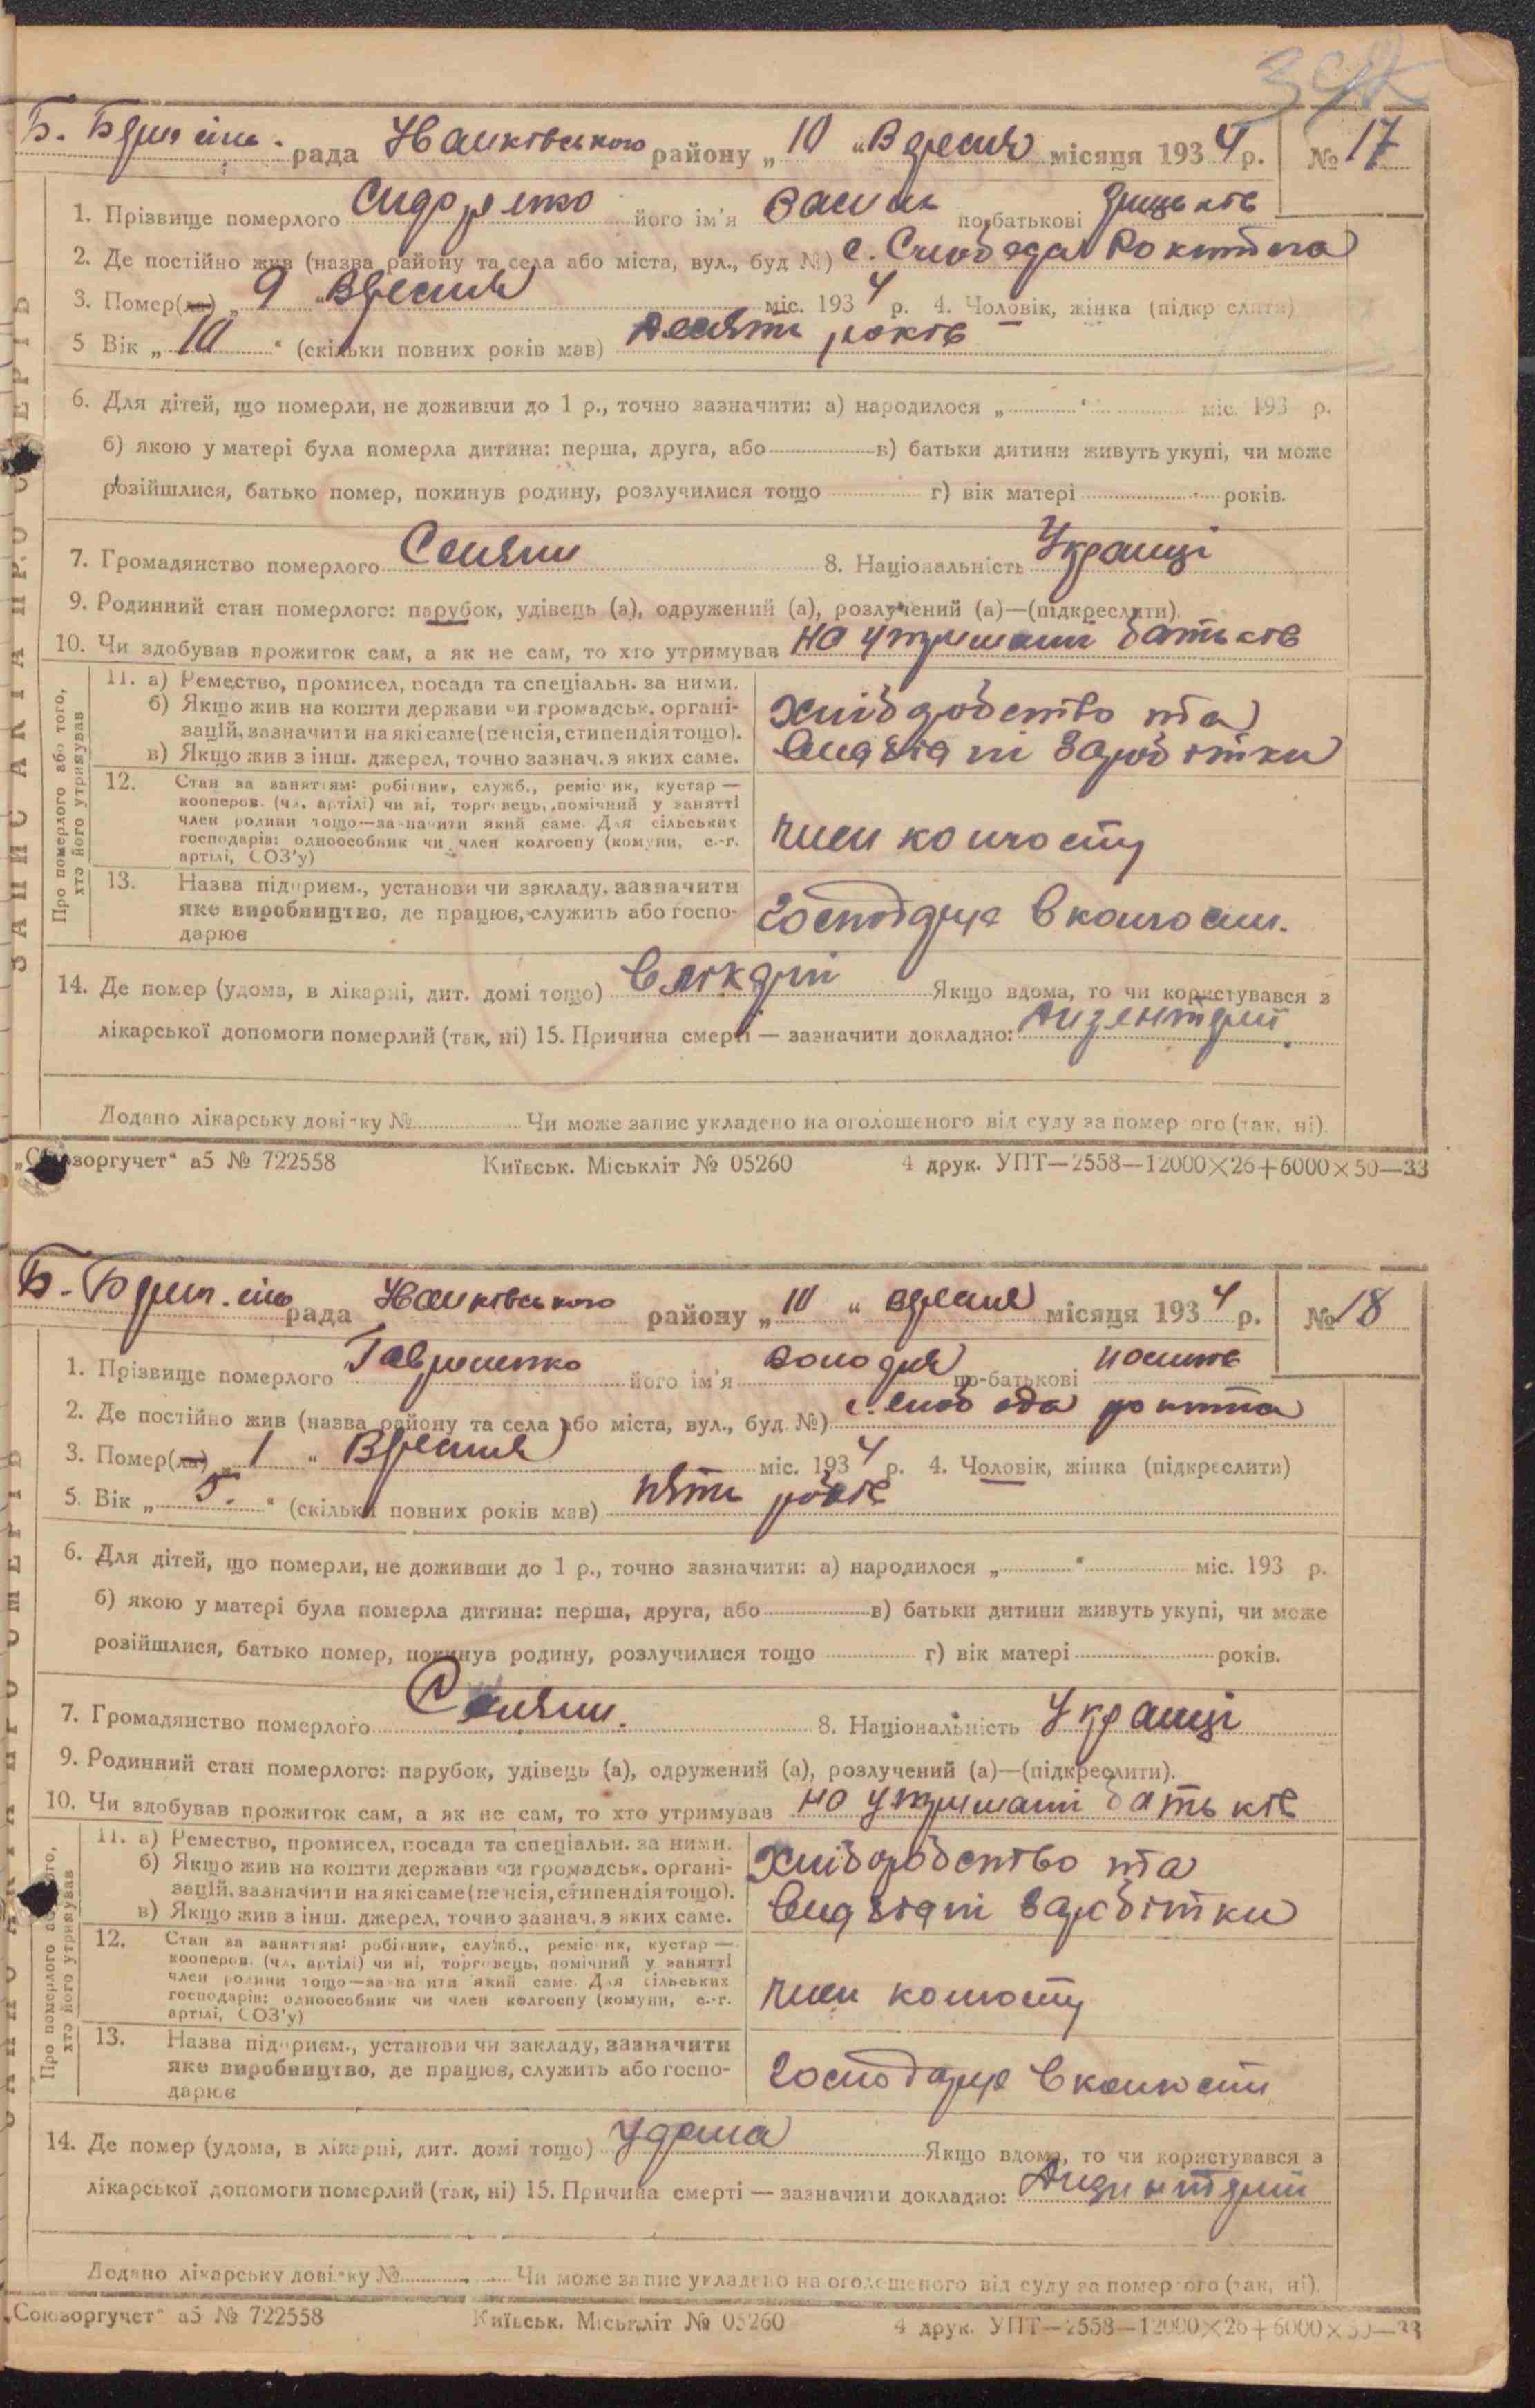 ЗАПИС АКТА ПРО СМЕРТЬ
рада району „ 10 “ Вересня місяця 1934 р. № 17
1. Прізвище померлого Сидоренко його ім'я Василь по-батькові Грицьків
2. Де постійно жив (назва району та села або міста, вул., буд №) с. Слобода Рокитна
3. Помер(ла) „ 9 “ Вересня міс. 1934 р. 4. Чоловік, жінка (підкреслити)
5 Вік „ 10 “ (скільки повних років мав) десять років
6. Для дітей, що померли, не доживши до 1 р., точно зазначити: а) народилося „ “ міс. 193 р.
б) якою у матері була померла дитина: перша, друга, або в) батьки дитини живуть укупі, чи може
розійшлися, батько помер, покинув родину, розлучилися тощо г) вік матері років.
7. Громадянство померлого Селяни 8. Національність Украинці
9. Родинний стан померлого: парубок, удівець (а), одружений (а), розлучений (а)—(підкреслити).
10. Чи здобував прожиток сам, а як не сам, то хто утримував на утриманні батьків
Про померлого або того, хто його утримував
11. а) Ремество, промисел, посада та спеціальн. за ними.
б) Якщо жив на кошти держави чи громадськ. органі-
зацій, зазначити на які саме (пенсія, стипендія тощо).
в) Якщо жив з інш. джерел, точно зазнач. з яких саме.
Хліборобство та
заробітки
12. Стан за заняттям: робітник, служб., реміс ик, кустар —
кооперов. (чл. артілі) чи ні, торговець, помічний у занятті
член родини тощо—зазначити який саме. Для сільських
господарів: одноосібник чи член колгоспу (комуни, с.-г.
артілі, СОЗ'у)
член колгоспу
13. Назва підприєм., установи чи закладу, зазначити
яке виробництво, де працює, служить або госпо-
дарює
Господарює в колгоспі.
14. Де помер (удома, в лікарні, дит. домі тощо) в лікарні Якщо вдома, то чи користувався з
лікарської допомоги померлий (так, ні) 15. Причина смерті — зазначити докладно: Дизентерії.
Додано лікарську довідку № Чи може запис укладено на оголошеного від суду за померлого (так, ні).
„Союзоргучет“ а5 № 722558 Київськ. Міськліт № 05260 4 друк. УПТ—2558—12000×26+6000×50—33
рада району „ 10 “ вересня місяця 1934 р. № 18
1. Прізвище померлого Гавриленко його ім'я Володя по-батькові
2. Де постійно жив (назва району та села або міста, вул., буд. №) с. Слобода рокитна
3. Помер(ла) „ 1 “ Вересня міс. 1934 р. 4. Чоловік, жінка (підкреслити)
5. Вік „ 5. “ (скільки повних років мав) пять років
6. Для дітей, що померли, не доживши до 1 р., точно зазначити: а) народилося „ “ міс. 193 р.
б) якою у матері була померла дитина: перша, друга, або в) батьки дитини живуть укупі, чи може
розійшлися, батько помер, покинув родину, розлучилися тощо г) вік матері років.
7. Громадянство померлого Селяни. 8. Національність Украинці
9. Родинний стан померлого: парубок, удівець (а), одружений (а), розлучений (а)—(підкреслити).
10. Чи здобував прожиток сам, а як не сам, то хто утримував на утриманні батьків
Про померлого або того, хто його утримував
11. а) Ремество, промисел, посада та спеціальн. за ними.
б) Якщо жив на кошти держави чи громадськ. органі-
зацій, зазначити на які саме (пенсія, стипендія тощо).
в) Якщо жив з інш. джерел, точно зазнач. з яких саме.
Хліборобство та
заробітки
12. Стан за заняттям: робітник, служб., реміс ик, кустар —
кооперов. (чл. артілі) чи ні, торговець, помічний у занятті
член родини тощо—зазначити який саме. Для сільських
господарів: одноосібник чи член колгоспу (комуни, с.-г.
артілі, СОЗ'у)
член колгоспу
13. Назва підприєм., установи чи закладу, зазначити
яке виробництво, де працює, служить або госпо-
дарює
Господарює в колгоспі
14. Де помер (удома, в лікарні, дит. домі тощо) удома Якщо вдома, то чи користувався з
лікарської допомоги померлий (так, ні) 15. Причина смерті — зазначити докладно: Дизинтерії
Додано лікарську довідку № Чи може запис укладено на оголошеного від суду за померлого (так, ні).
„Союзоргучет“ а5 № 722558 Київськ. Міськліт № 05260 4 друк. УПТ—2558—12000×26+6000×50—33